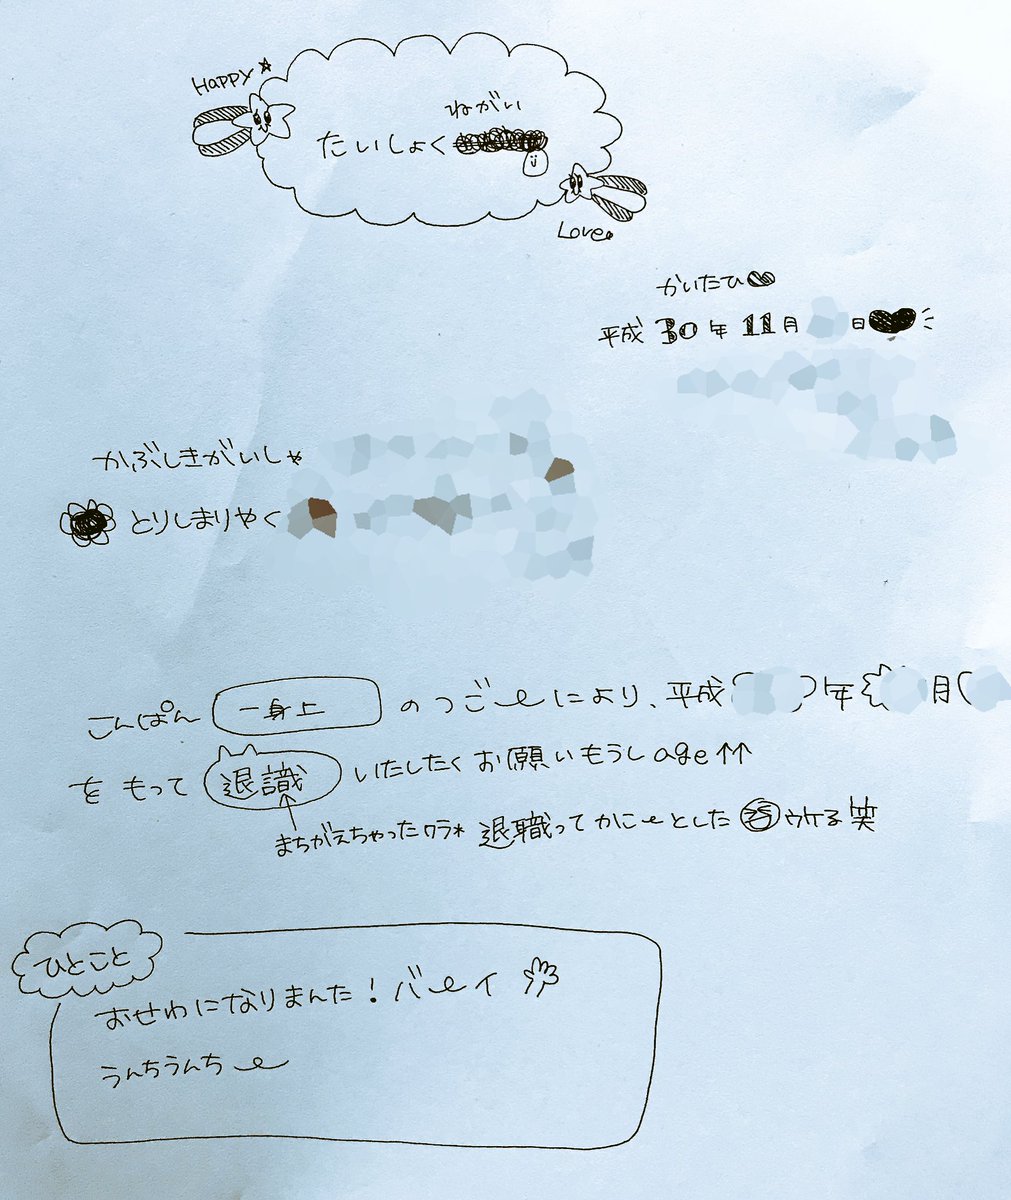 Happy☆
ねがい
たいしょく
Love
かいたひ♥
平成 30年 11月 日♥
かぶしきがいしゃ
とりしまりやく
こんぱん 一身上 のつごーにより、平成( )年{ }月(
をもって 退識 いたしたくお願いもうしage↑↑
まちがえちゃったワラ* 退職ってかにーとした ウケる笑
ひとこと
おせわになりまんた!バーイ
うんちうんちー